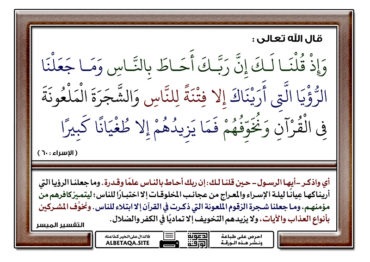 قال الله تعالى :
وَإِذْ قُلْنَا لَكَ إِنَّ رَبَّكَ أَحَاطَ بِالنَّاسِ وَمَا جَعَلْنَا
الرُّؤْيَا الَّتِي أَرَيْنَاكَ إِلا فِتْنَةً لِلنَّاسِ وَالشَّجَرَةَ الْمَلْعُونَةَ
فِي الْقُرْآنِ وَنُخَوِّفُهُمْ فَمَا يَزِيدُهُمْ إِلا طُغْيَانًا كَبِيرًا
(الإسراء : ٦٠)
أي واذكر -أيها الرسول- حين قلنا لك: إن ربك أحاط بالناس علمًا وقدرة. وما جعلنا الرؤيا التي
أريناكها عيانًا ليلة الإسراء والمعراج من عجائب المخلوقات إلا اختبارًا للناس؛ ليتميز كافرهم من
مؤمنهم، وما جعلنا شجرة الزقوم الملعونة التي ذكرت في القرآن إلا ابتلاء للناس. ونخوِّف المشركين
بأنواع العذاب والآيات، ولا يزيدهم التخويف إلا تماديًا في الكفر والضلال.
التفسير الميسر
احرص على طباعة
ونشر هذه الورقة
ALBETAQA.SITE